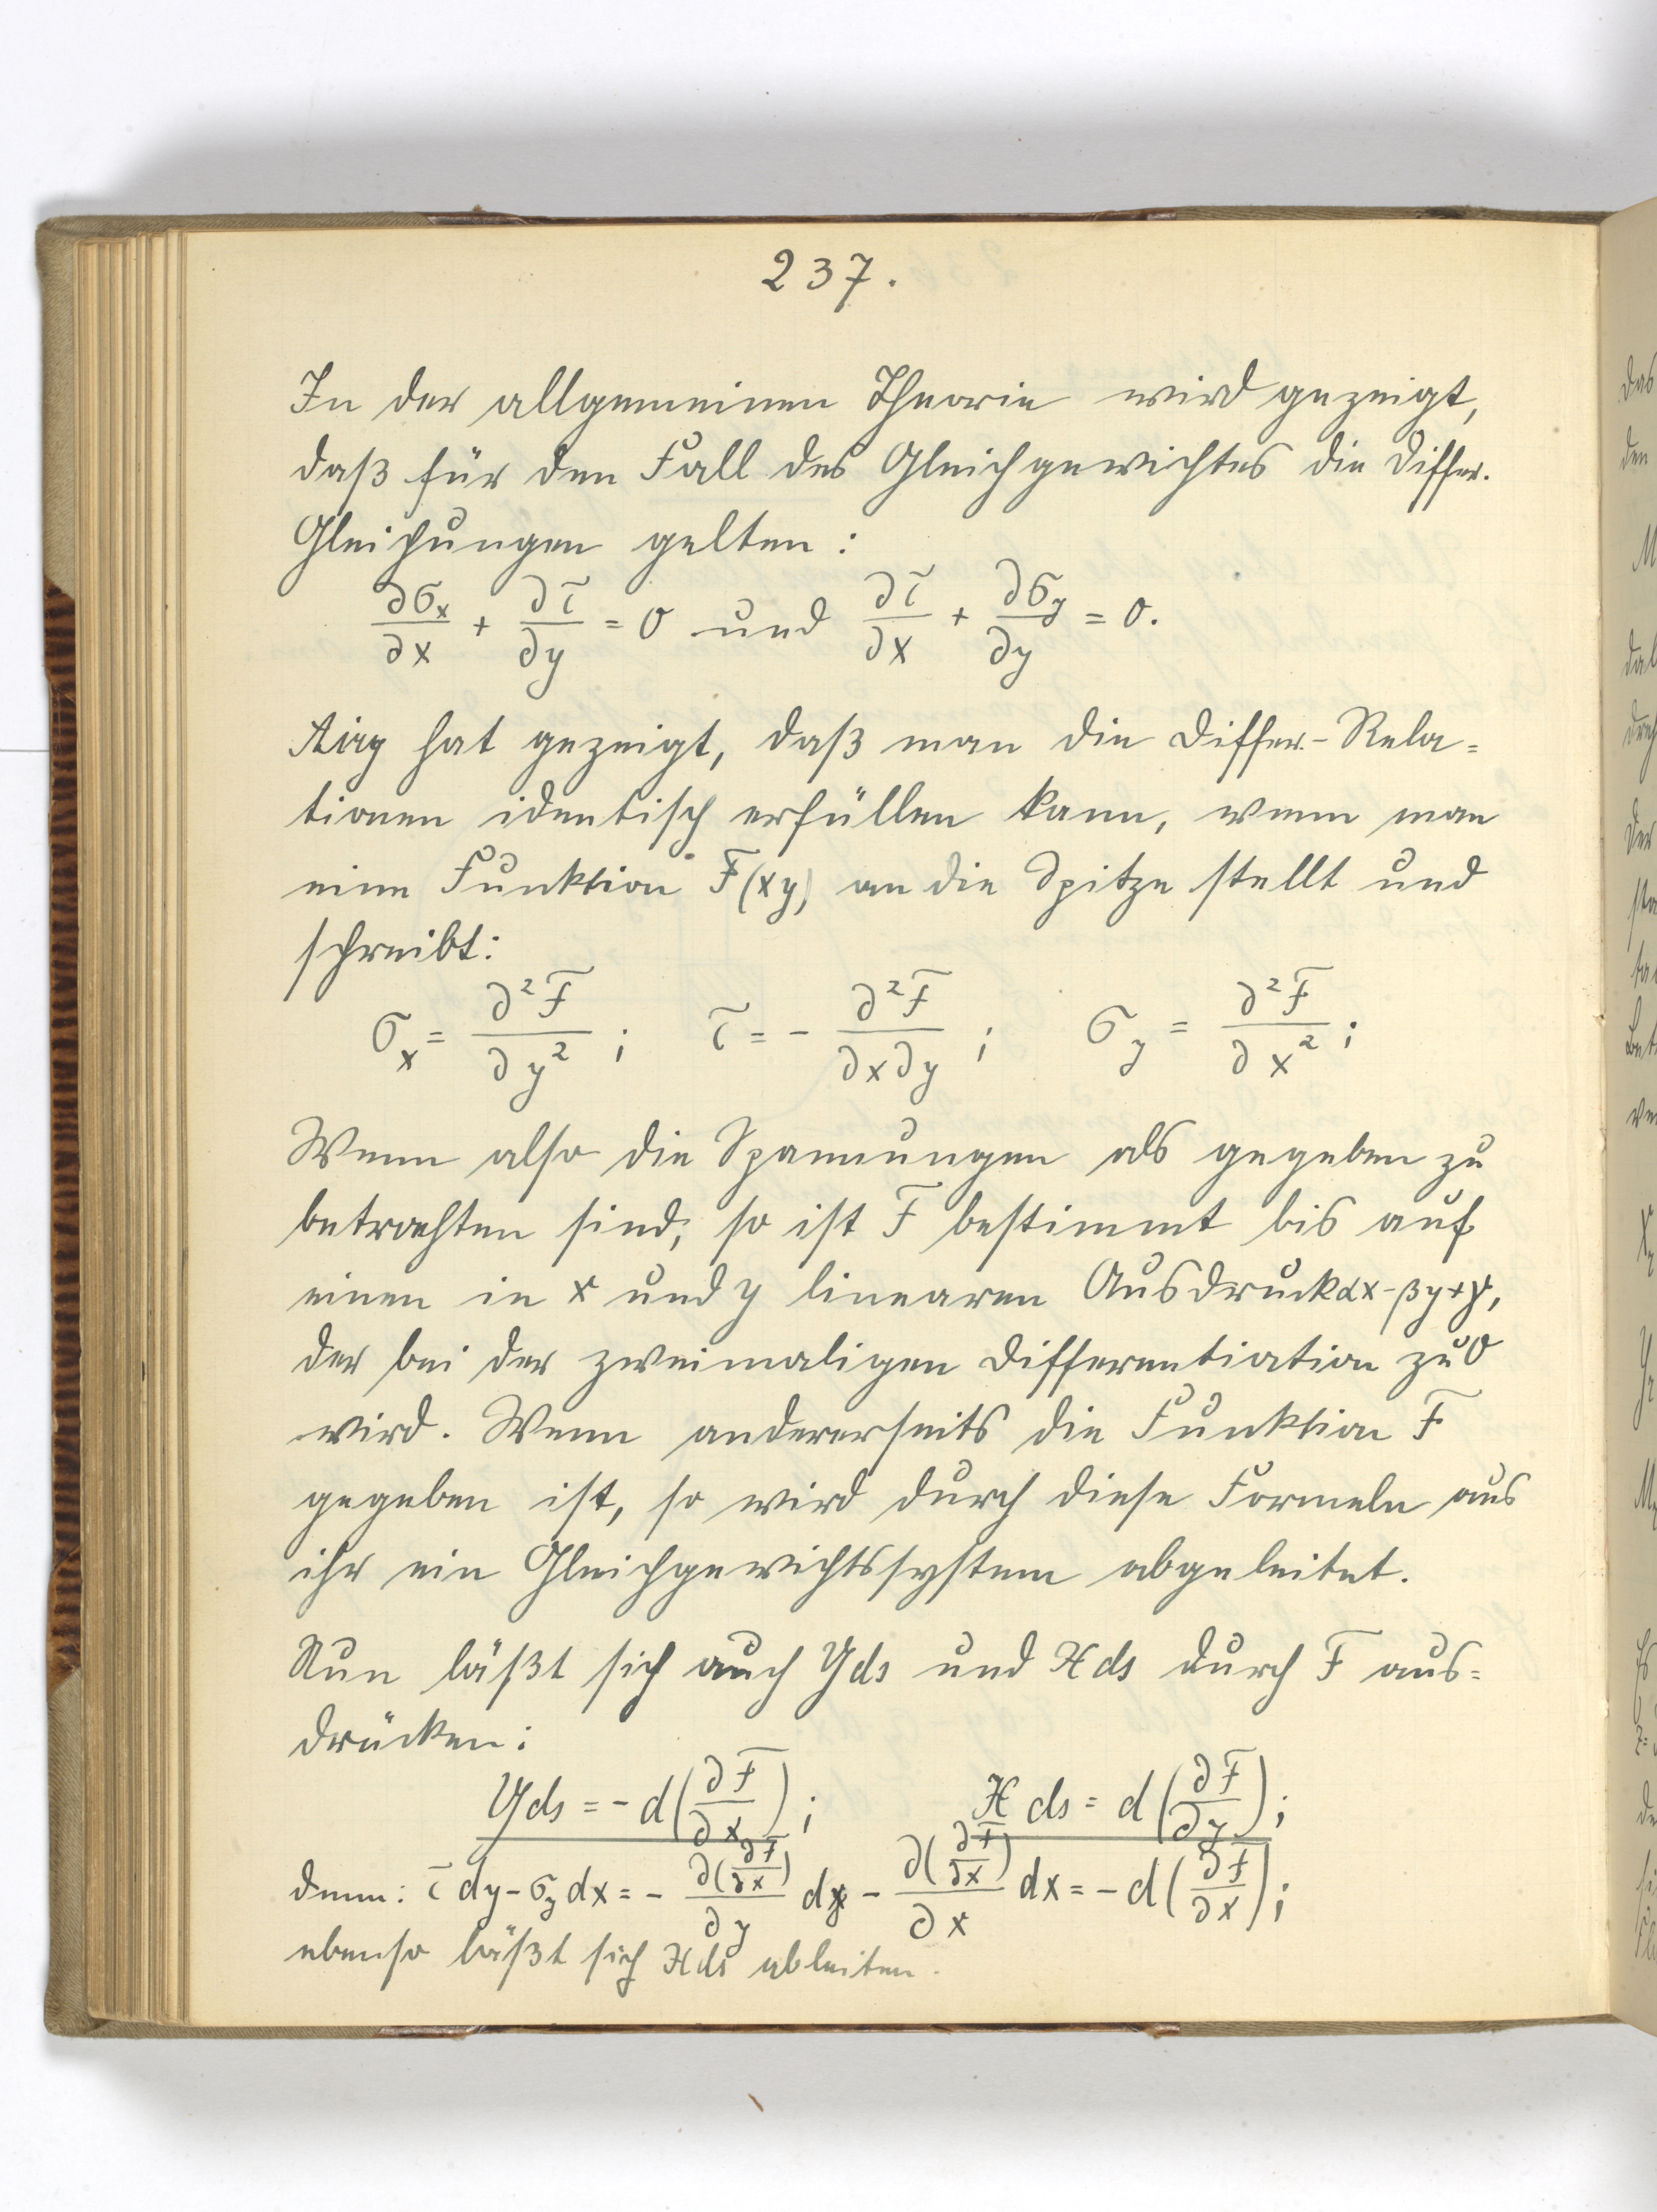 237.
In der allgemeinen Theorie wird gezeigt,
daß für den Fall des Gleichgewichtes die Differ.
Gleichungen gelten:
∂σₓ/∂x + ∂τ/∂y = 0 und ∂τ/∂x + ∂σ_y/∂y = 0.
Airy hat gezeigt, daß man die Differ.-Rela=
tionen identisch erfüllen kann, wenn man
eine Funktion F(xy) an die Spitze stellt und
schreibt:
σₓ = ∂²F/∂y² ; τ = - ∂²F/∂x∂y ; σ_y = ∂²F/∂x² ;
Wenn also die Spannungen als gegeben zu
betrachten sind, so ist F bestimmt bis auf
einen in x und y linearen Ausdruck αx-βy+γ,
der bei der zweimaligen Differentiation zu 0
wird. Wenn andererseits die Funktion F
gegeben ist, so wird durch diese Formeln aus
ihr ein Gleichgewichtssystem abgeleitet.
Nun läßt sich auch Yds und Xds durch F aus=
drücken:
Yds = - d(∂F/∂x) ; X ds = d(∂F/∂y) ;
denn: τ dy - σ_y dx = - ∂(∂F/∂x)/∂y dy - ∂(∂F/∂x)/∂x dx = - d(∂F/∂x) ;
ebenso läßt sich Xds ableiten.